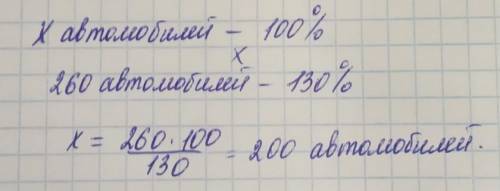 X автомобилей – 100%
x
260 автомобилей – 130%
x = 260 · 100 / 130 = 200 автомобилей.